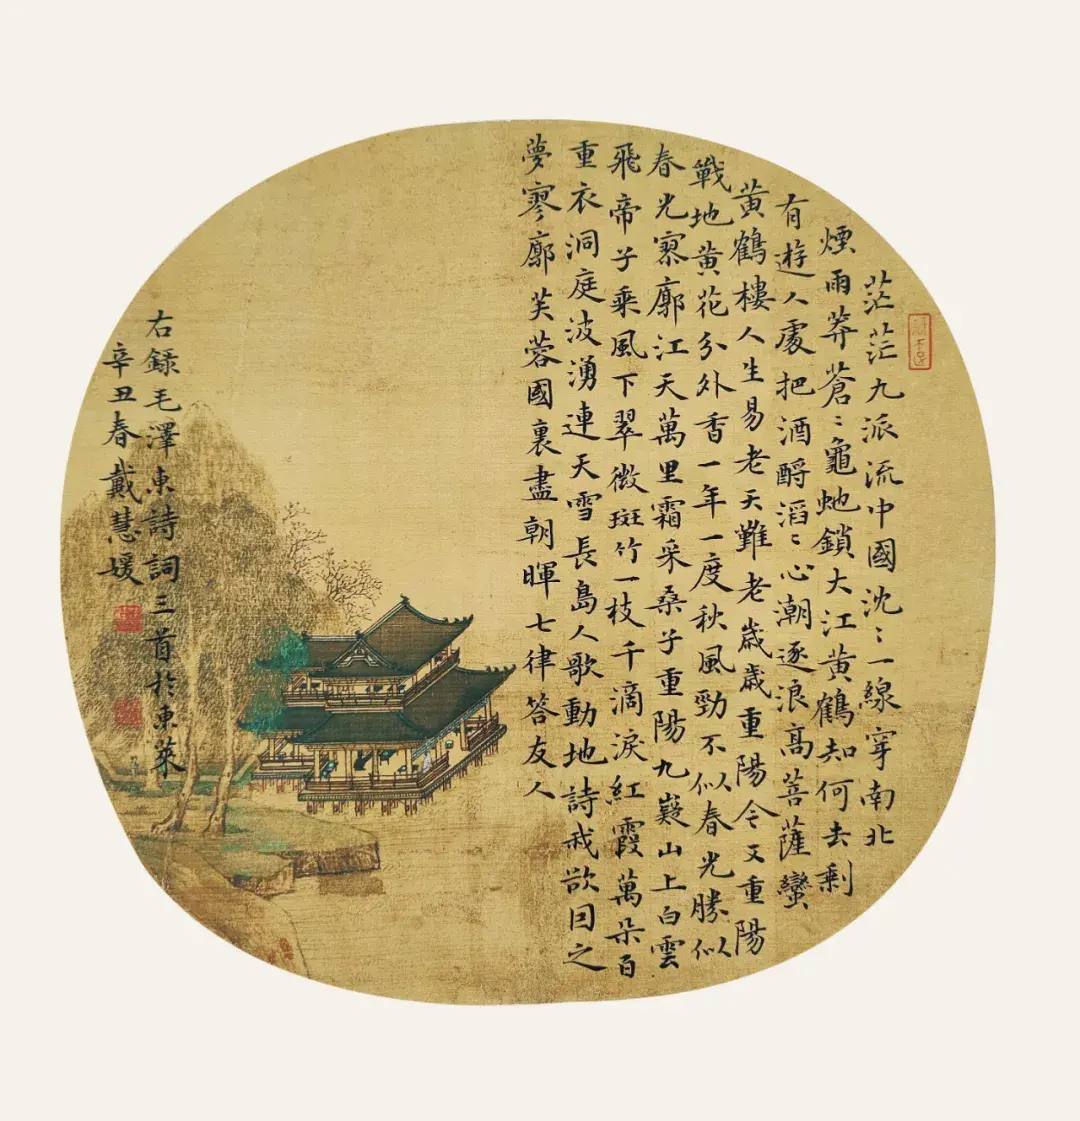 茫茫九派流中國沈〻一線穿南北
煙雨莽蒼〻龜虵鎖大江黃鶴知何去剩
有遊人處把酒酹滔〻心潮逐浪高菩薩蠻
黃鶴樓人生易老天難老歲歲重陽今又重陽
戰地黃花分外香一年一度秋風勁不似春光勝似
春光寥廓江天萬里霜采桑子重陽九嶷山上白雲
飛帝子乘風下翠微斑竹一枝千滴淚紅霞萬朵百
重衣洞庭波湧連天雪長島人歌動地詩我欲因之
夢寥廓芙蓉國裏盡朝暉七律答友人
右錄毛澤東詩詞三首於東萊
辛丑春戴慧媛